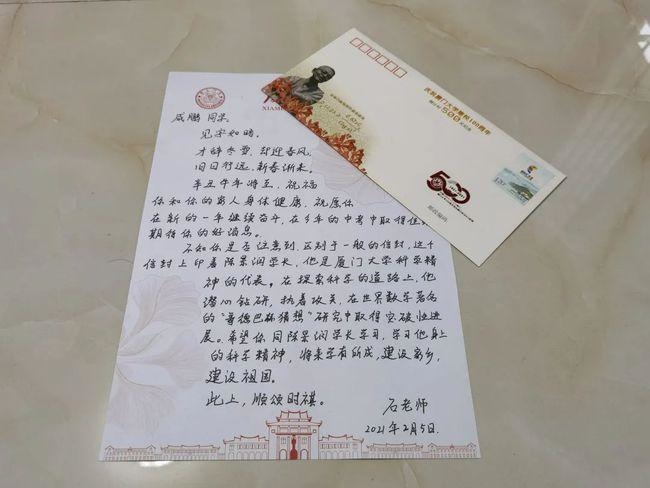 XIAM
咸鹏 同学:
见字如晤。
才辞冬雪,却迎春风,
旧日行远,新春渐来。
辛丑牛年将至,祝福
你和你的家人身体健康,祝愿你
在新的一年继续奋斗,在今年的中考中取得佳
期待你的好消息。
不知你是否注意到,区别于一般的信封,这个
信封上印着陈景润学长,他是厦门大学科学精
神的代表。在探索科学的道路上,他
潜心钻研,执着攻关,在世界数学著名
的“哥德巴赫猜想”研究中取得突破性进
展。希望你向陈景润学长学习,学习他身上
的科学精神,将来学有所成,建设家乡,
建设祖国。
此上,顺颂时祺。
石老师
2021年2月5日.
庆祝厦门大学建校100周年
倒计时500天纪念
500
邮政编码